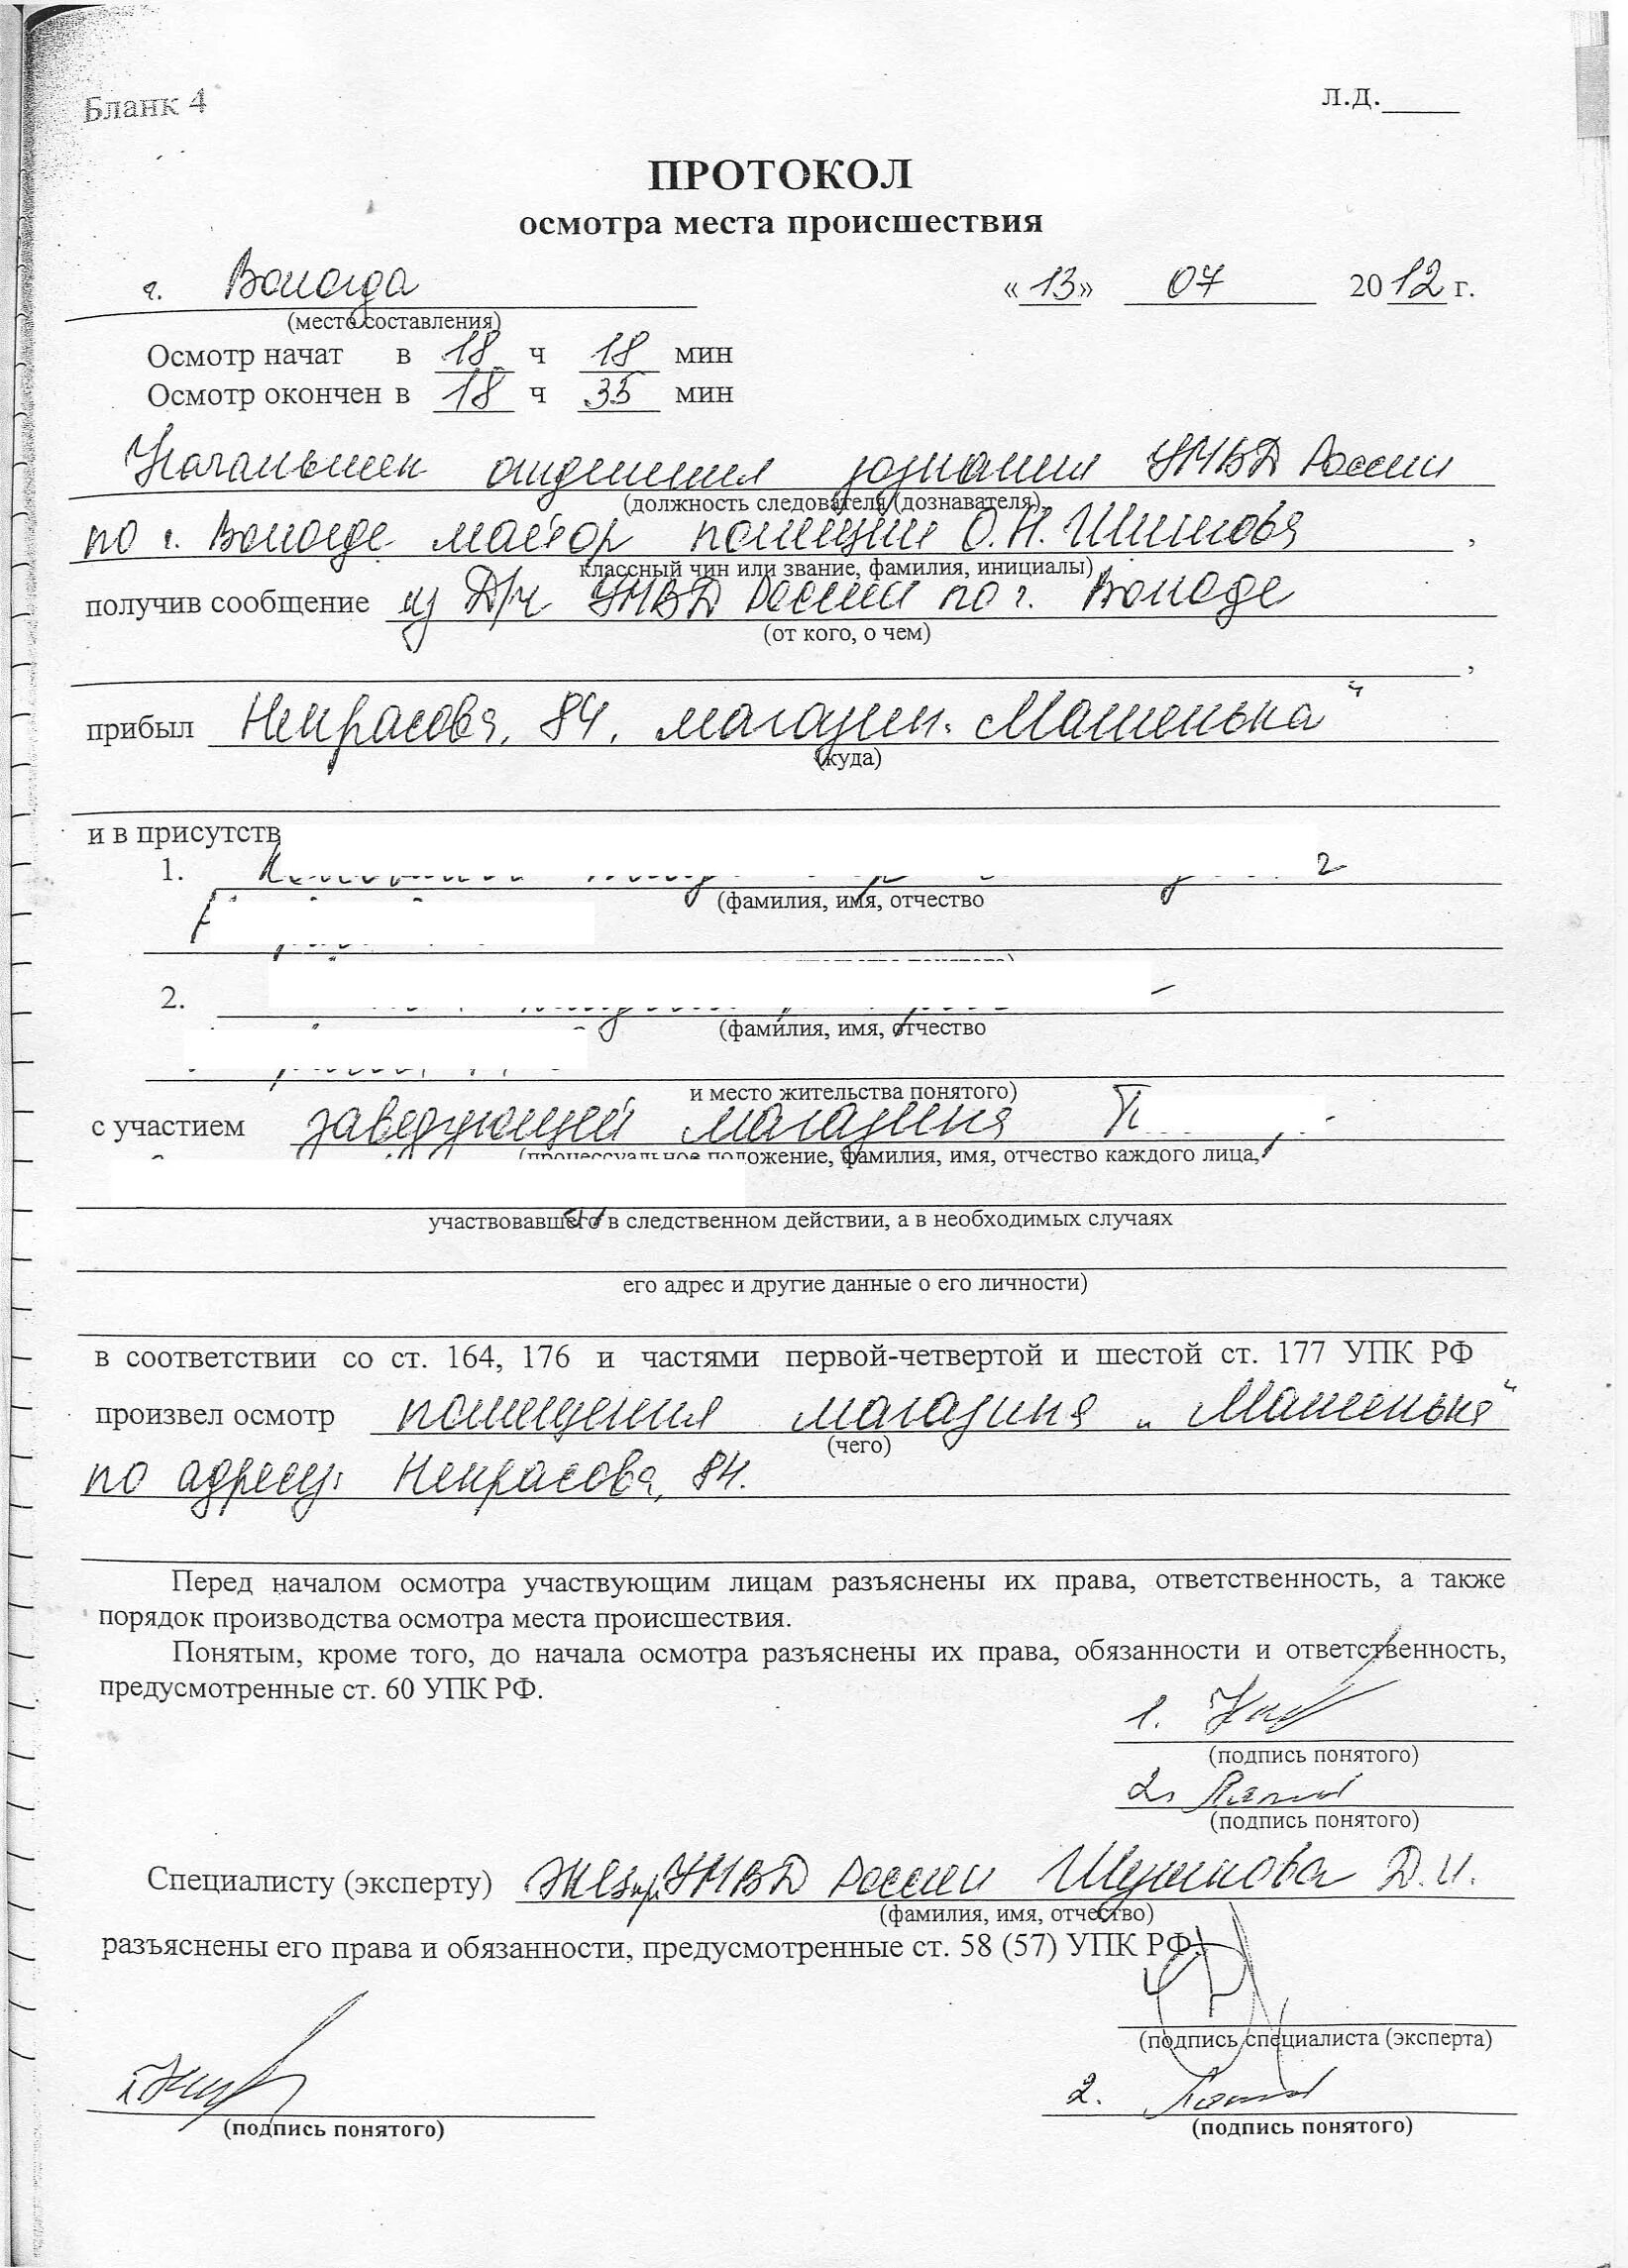 Бланк 4
л.д.
ПРОТОКОЛ
осмотра места происшествия
г. Вологда «13» 07 2012 г.
(место составления)
Осмотр начат в 18 ч 18 мин
Осмотр окончен в 18 ч 35 мин
Начальник отделения дознания УМВД России
(должность следователя (дознавателя),
по г. Вологде майор полиции О.Н.
классный чин или звание, фамилия, инициалы)
получив сообщение из Д/ч УМВД России по г. Вологде
(от кого, о чем)
прибыл Некрасова, 84, магазин "Машенька"
(куда)
и в присутств
1.
(фамилия, имя, отчество
2.
(фамилия, имя, отчество
и место жительства понятого)
с участием заведующей магазина П
(процессуальное положение, фамилия, имя, отчество каждого лица,
участвовавшего в следственном действии, а в необходимых случаях
его адрес и другие данные о его личности)
в соответствии со ст. 164, 176 и частями первой-четвертой и шестой ст. 177 УПК РФ
произвел осмотр помещения магазина "Машенька"
(чего)
по адресу: Некрасова, 84.
Перед началом осмотра участвующим лицам разъяснены их права, ответственность, а также
порядок производства осмотра места происшествия.
Понятым, кроме того, до начала осмотра разъяснены их права, обязанности и ответственность,
предусмотренные ст. 60 УПК РФ.
1.
(подпись понятого)
2.
(подпись понятого)
Специалисту (эксперту) УМВД России Д.И.
(фамилия, имя, отчество)
разъяснены его права и обязанности, предусмотренные ст. 58 (57) УПК РФ.
(подпись специалиста (эксперта)
1. 2.
(подпись понятого) (подпись понятого)